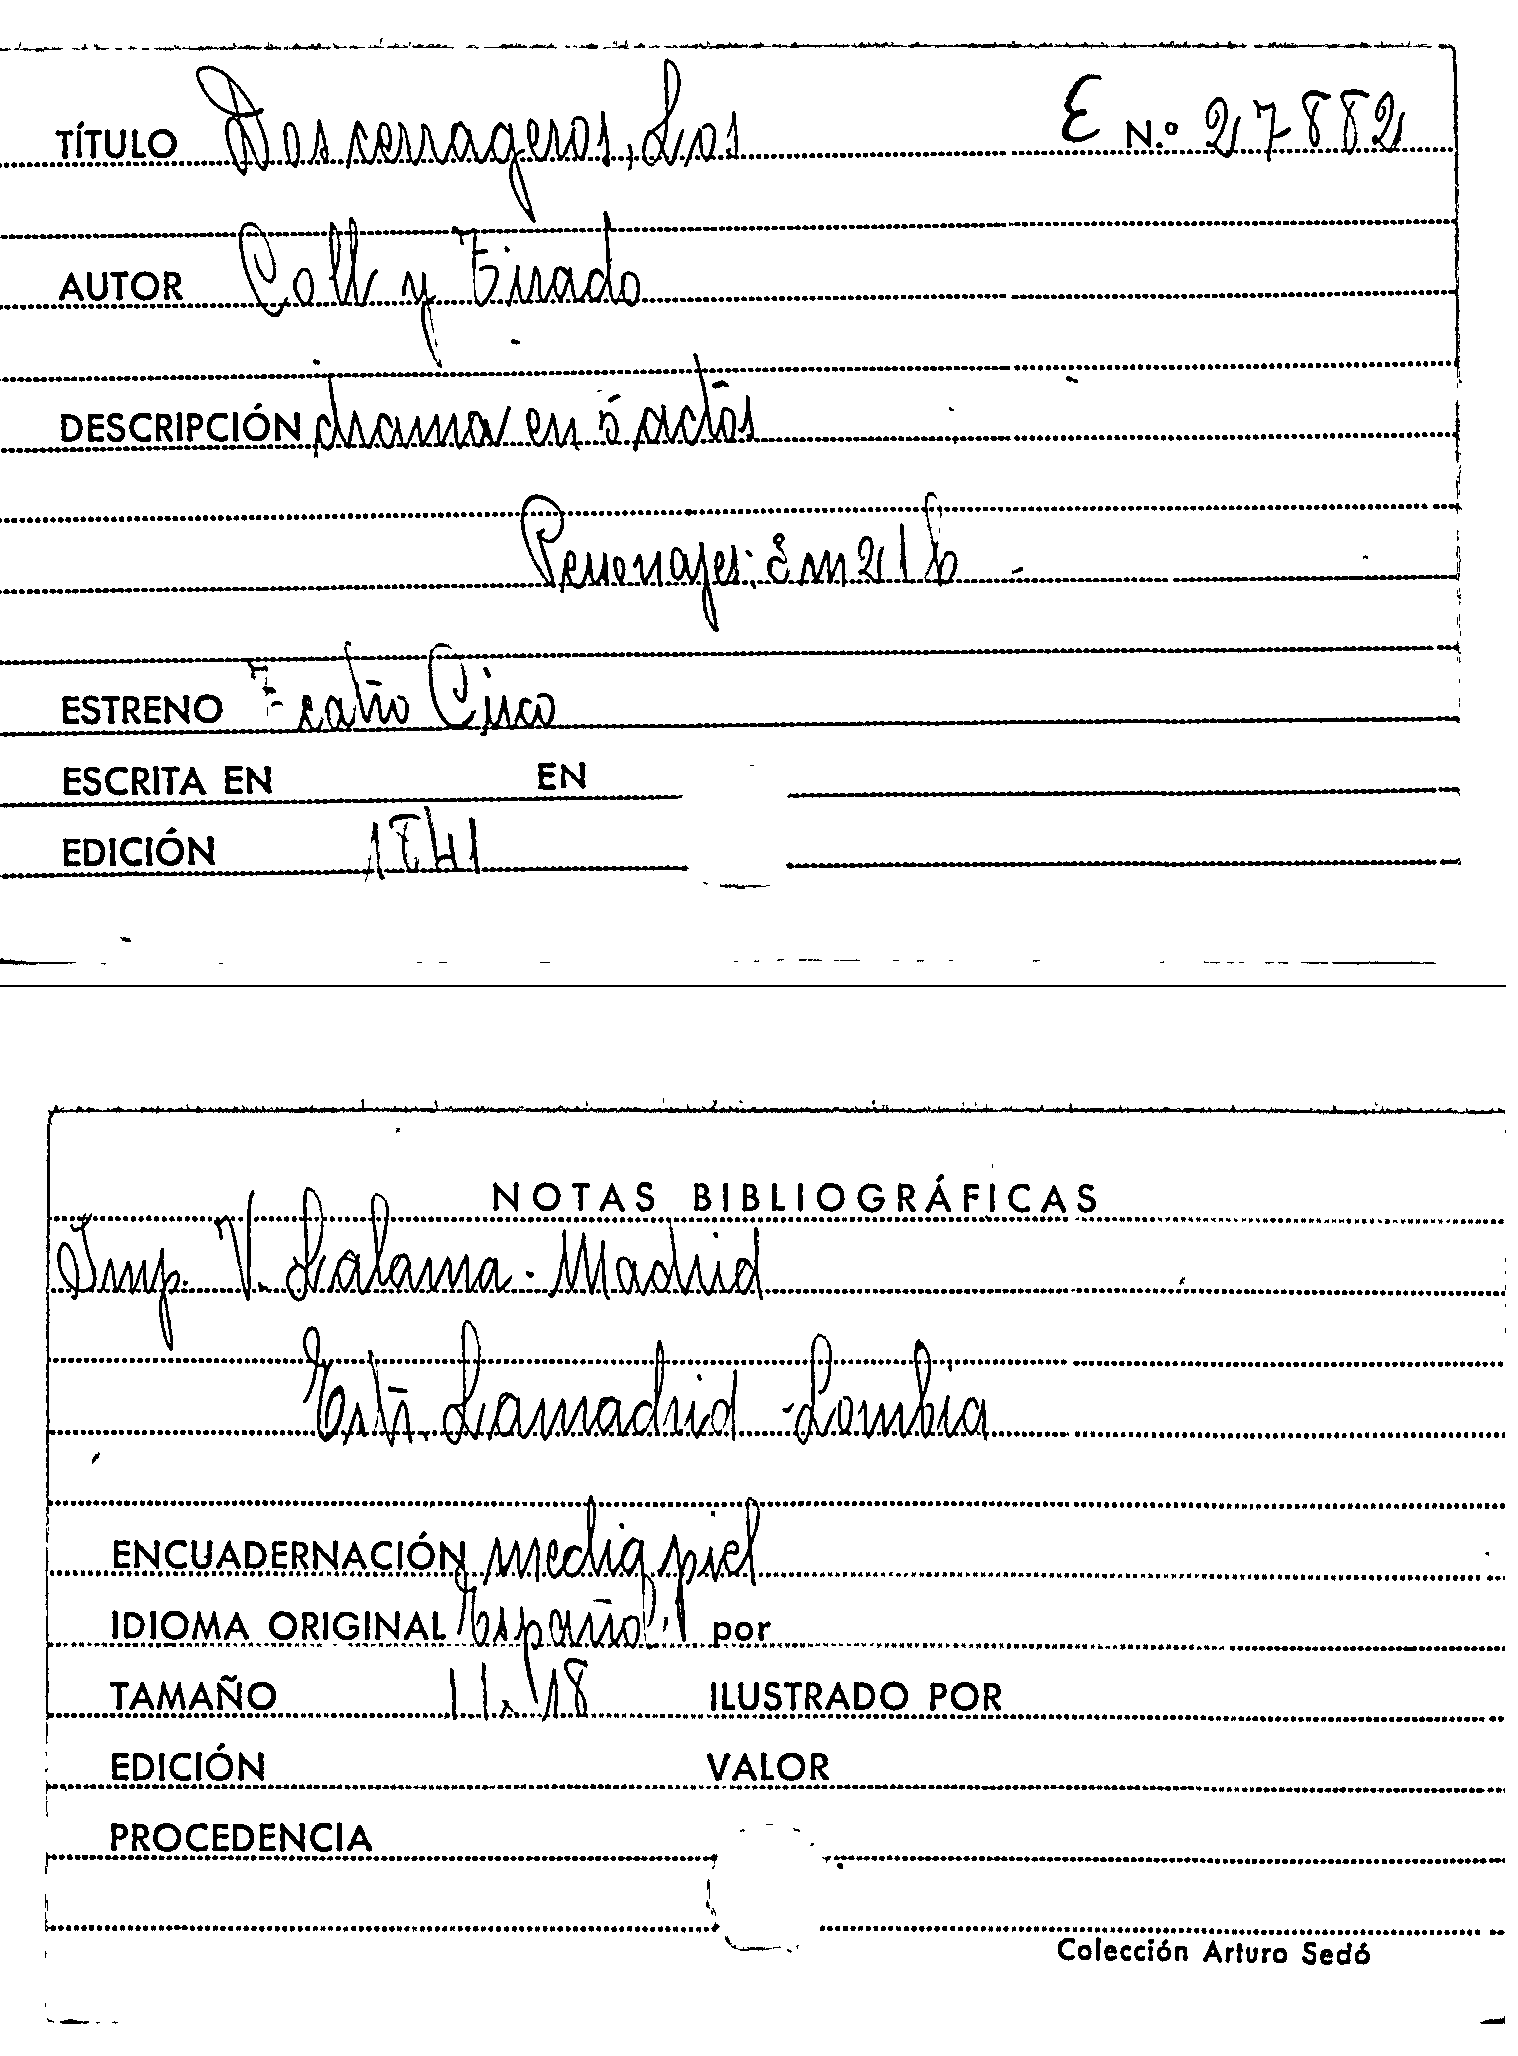 TÍTULO Dos cerrageros, Los E N.º 27882
AUTOR Coll y Tirado
DESCRIPCIÓN drama en 5 actos
Personajes: 8 m 2 1 b
ESTRENO Teatro Circo
ESCRITA EN EN
EDICIÓN 1841
NOTAS BIBLIOGRÁFICAS
Imp. V. Lalama - Madrid
Lamadrid - Lombia
ENCUADERNACIÓN media piel
IDIOMA ORIGINAL Español por
TAMAÑO 11 x 18 ILUSTRADO POR
EDICIÓN VALOR
PROCEDENCIA
Colección Arturo Sedó